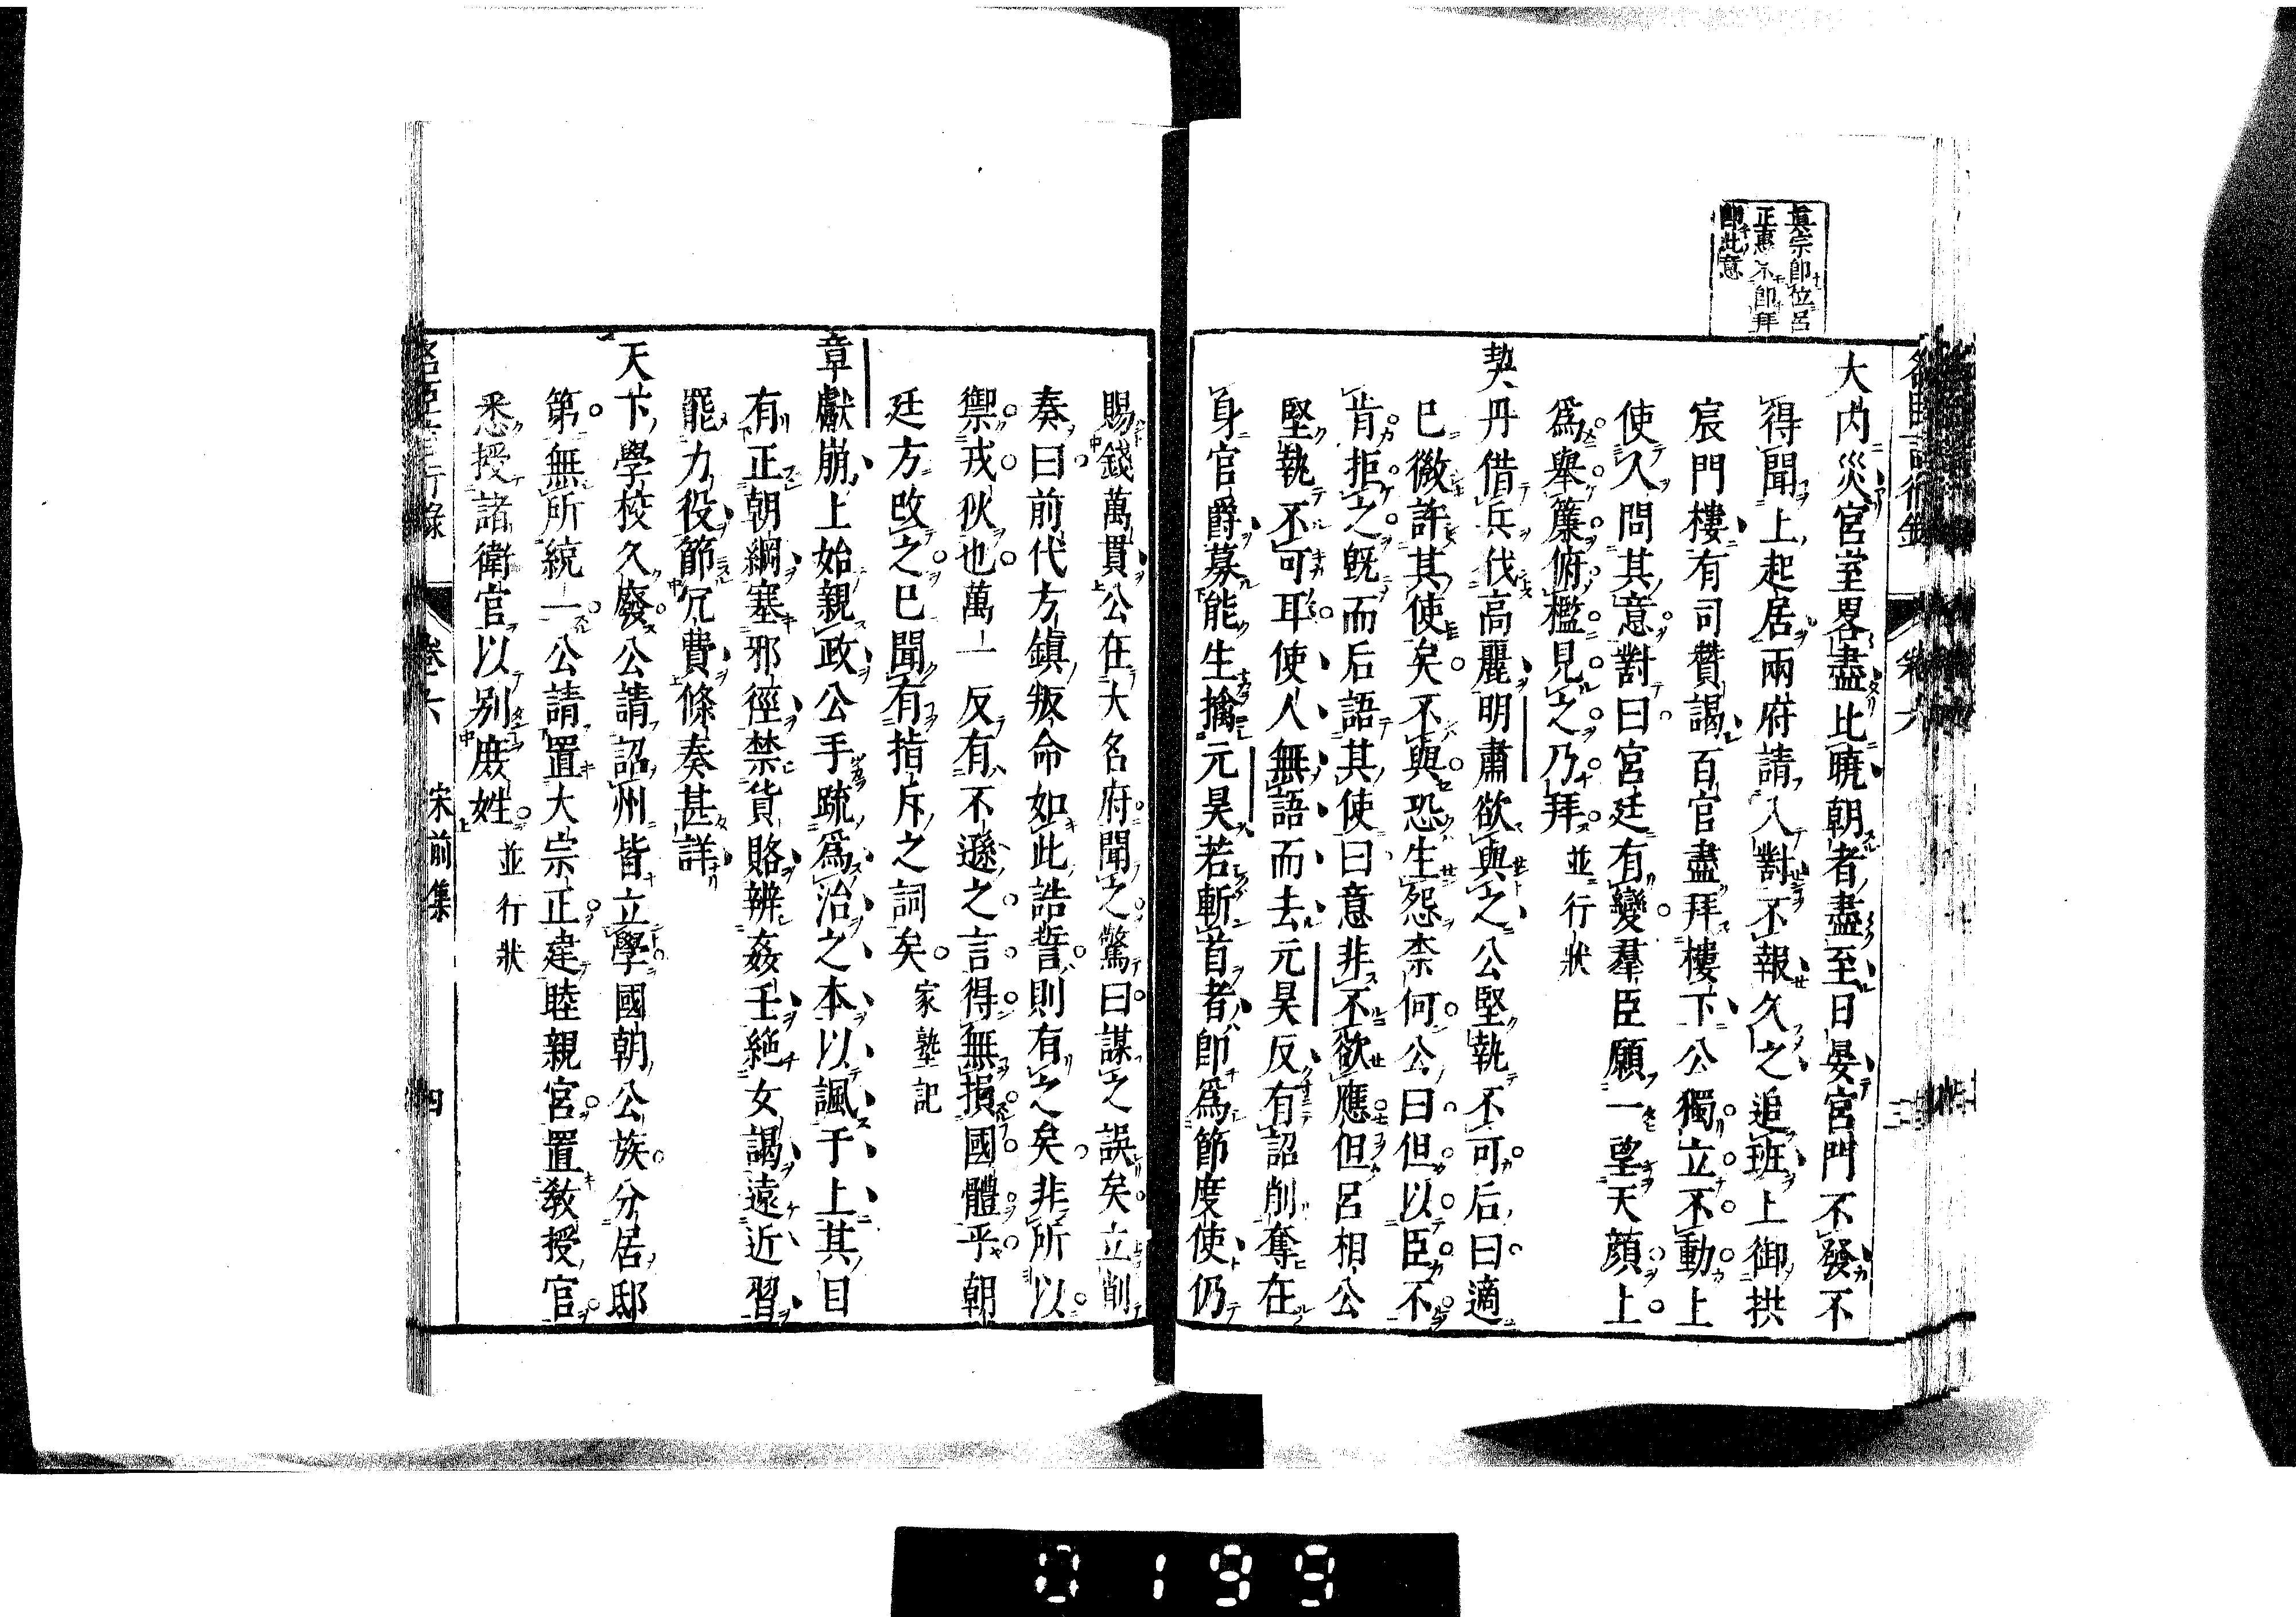 真宗即位呂
正惠不即拜
即此意
大内災宮室畧盡比曉朝者盡至日晏宮門不發不
得聞上起居兩府請入對不報久之追班上御拱
宸門樓有司贊謁百官盡拜樓下公獨立不動上
使人問其意對曰宮廷有變羣臣願一望天顔上
爲舉簾俯檻見之乃拜並行狀
契丹借兵伐高麗明肅欲與之公堅執不可后曰適
已微許其使矣不與恐生怨柰何公曰但以臣不
肯拒之既而后語其使曰意非不欲應但呂相公
堅執不可耳使人無語而去元昊反有詔削奪在
身官爵募能生擒元昊若斬首者即爲節度使仍
賜錢萬貫公在大名府聞之驚曰謀之誤矣立削
奏曰前代方鎭叛命如此誥誓則有之矣非所以
禦戎狄也萬一反有不遜之言得無損國體乎朝
廷方改之已聞有指斥之詞矣家塾記
章獻崩上始親政公手疏爲治之本以諷于上其目
有正朝綱塞邪徑禁貨賂辨姦壬絶女謁遠近習
罷力役節冗費條奏甚詳
天下學校久廢公請詔州皆立學國朝公族分居邸
第無所統一公請置大宗正建睦親宮置教授官
悉授諸衛官以别庶姓並行狀
卷六 宋前集 四
0199